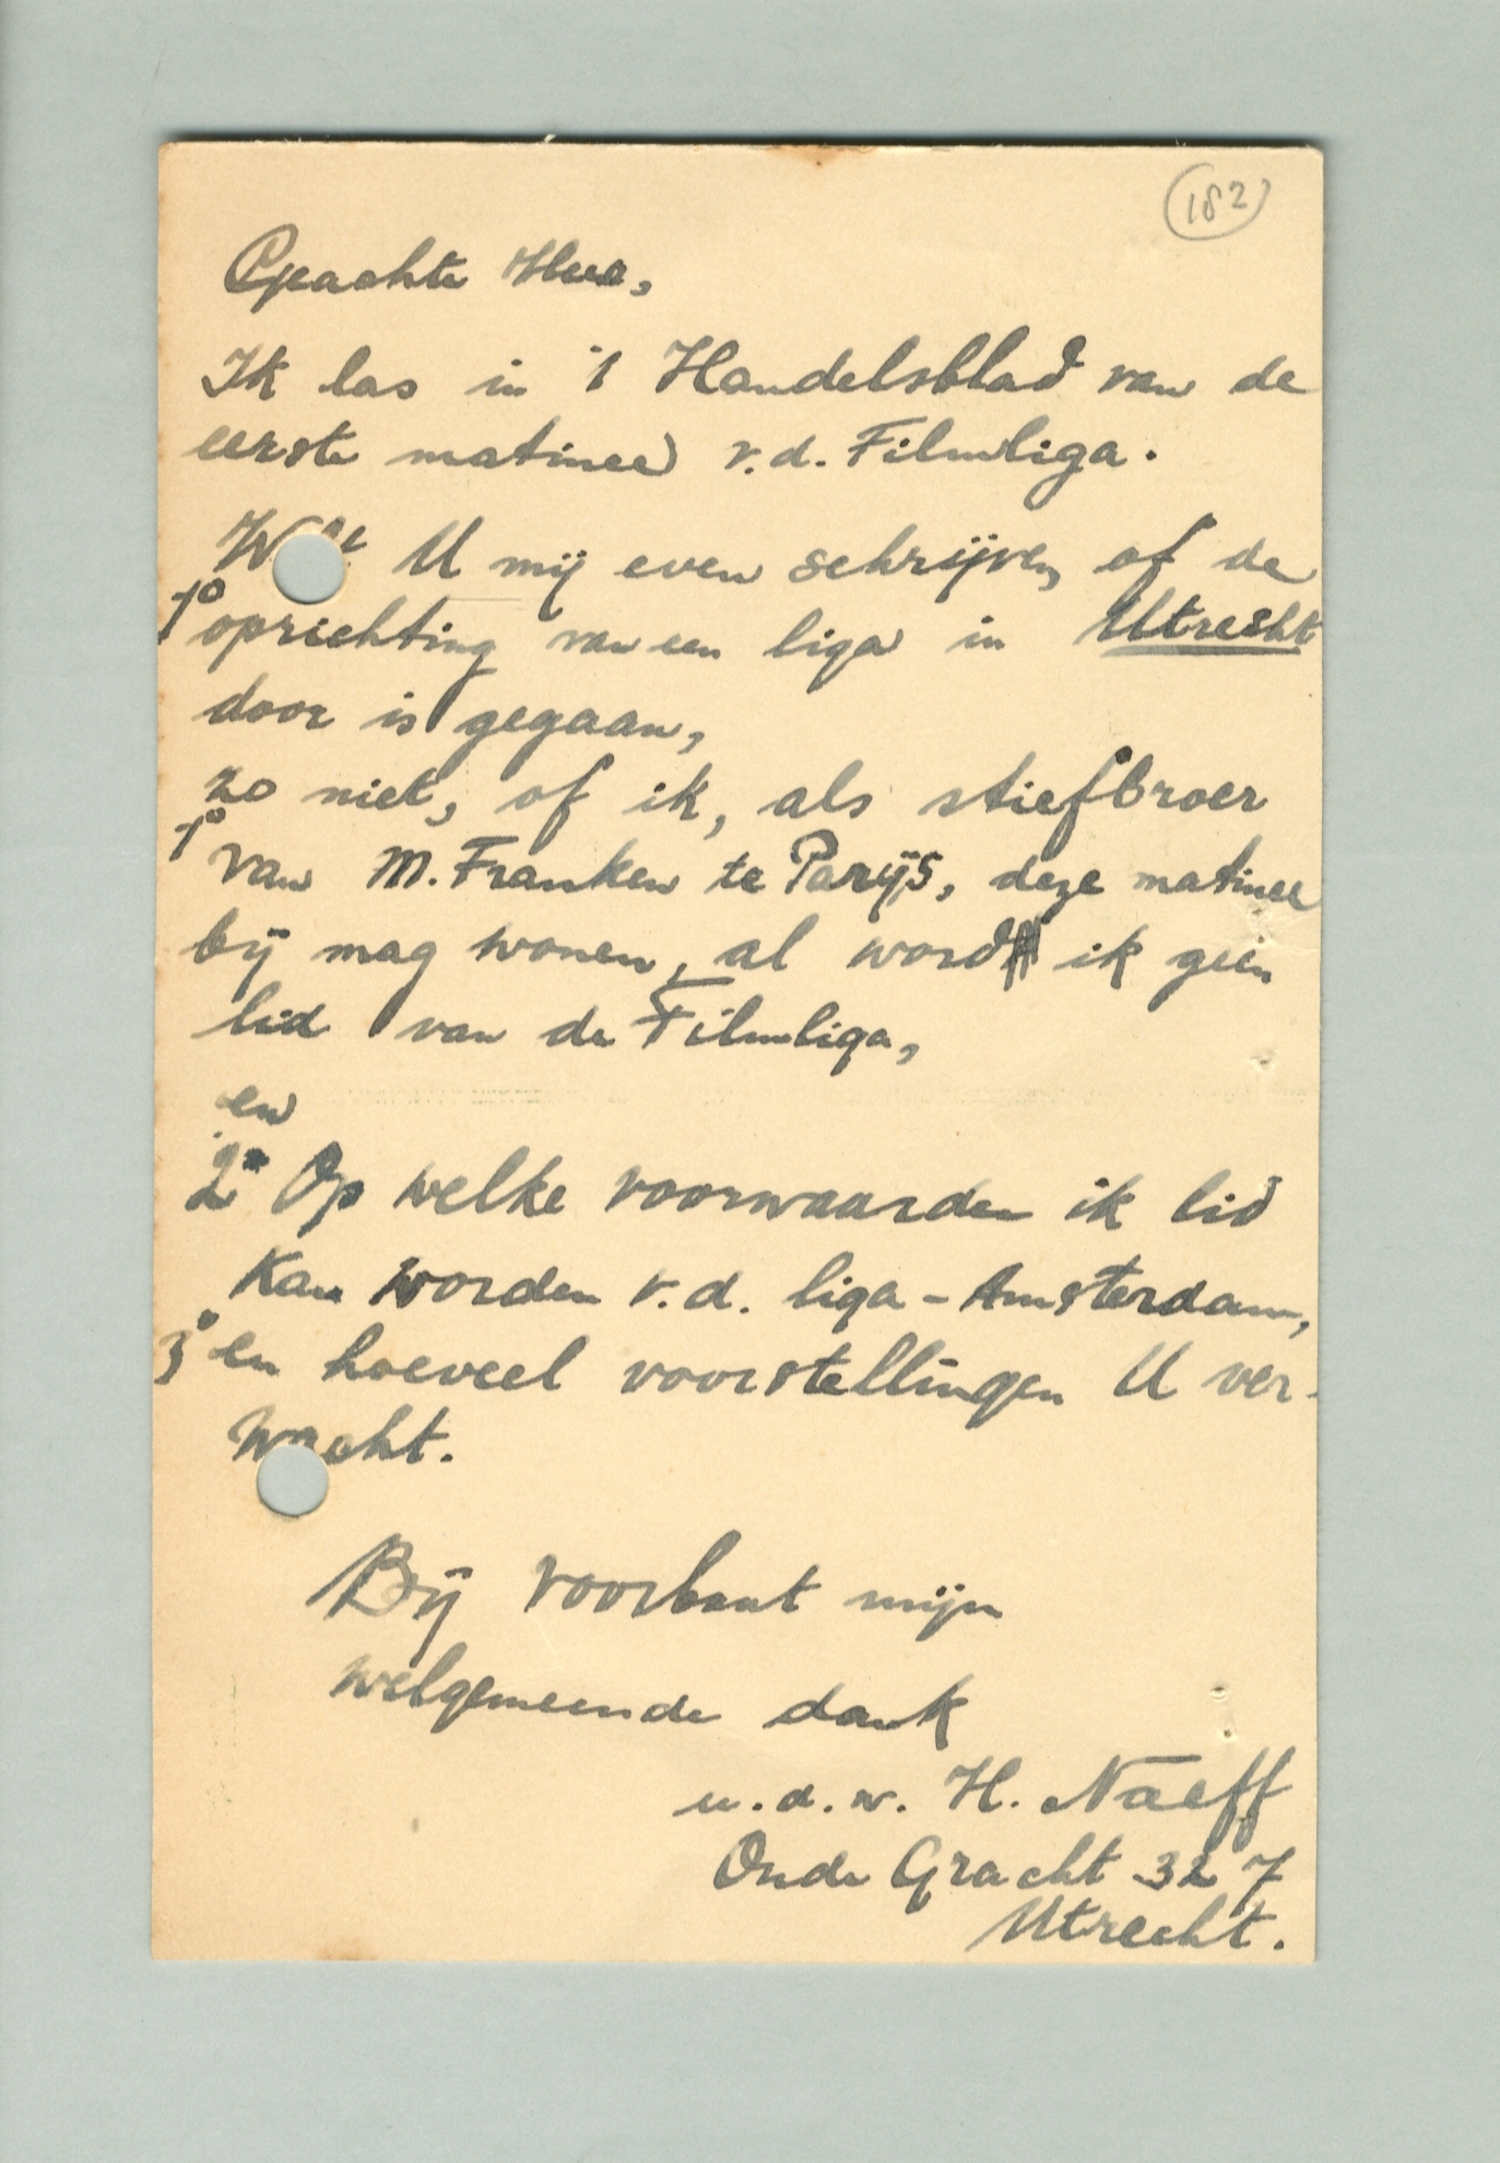 182
Geachte Heer,
Ik las in 't Handelsblad van de
eerste matinee v.d. Filmliga.
Wilt U mij even schrijven of de
1° oprichting van een liga in Utrecht
door is gegaan,
zo niet, of ik, als stiefbroer
1° van M. Franken te Parijs, deze matinee
bij mag wonen, al word ik geen
lid van de Filmliga,
en
2° Op welke voorwaarden ik lid
kan worden v.d. liga - Amsterdam,
3° en hoeveel voorstellingen U ver-
wacht.
Bij voorbaat mijn
welgemeende dank
u.d.w. H. Naeff
Oude Gracht 327
Utrecht.